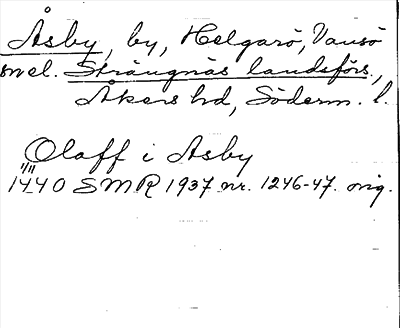 Åsby, by, Helgarö, Vansö
sml. Strängnäs landsförs.,
Åkers hd, Söderm. l.
Olaff i Asby
1/11
1440 SMR 1937 nr. 1246-47. orig.